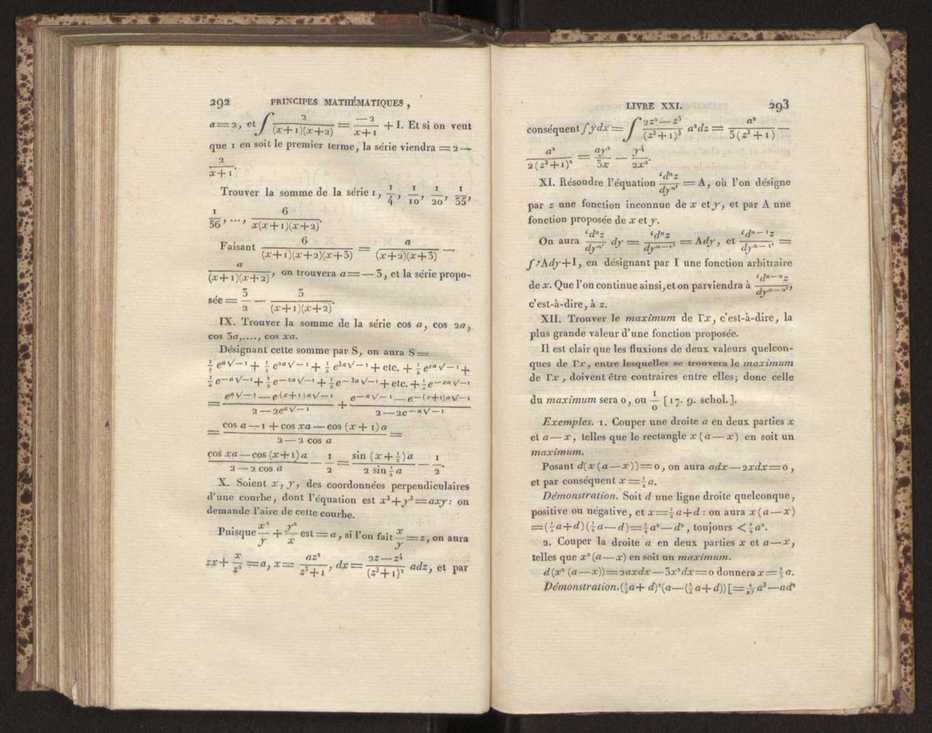 292 PRINCIPES MATHÉMATIQUES,
a=2, et ∫ 2/((x+1)(x+2)) = −2/(x+1) + I. Et si on veut
que 1 en soit le premier terme, la série viendra = 2 —
2/(x+1).
Trouver la somme de la série 1, 1/4, 1/10, 1/20, 1/35,
1/56, ..., 6/(x(x+1)(x+2)).
Faisant 6/((x+1)(x+2)(x+3)) = a/((x+2)(x+3)) —
a/((x+1)(x+2)), on trouvera a=—3, et la série propo-
sée = 3/2 — 3/((x+1)(x+2)).
IX. Trouver la somme de la série cos a, cos 2a,
cos 3a,...., cos xa.
Désignant cette somme par S, on aura S=
½ e^(a√−1) + ½ e^(2a√−1) + ½ e^(3a√−1) + etc. + ½ e^(xa√−1) +
½ e^(−a√−1) + ½ e^(−2a√−1) + ½ e^(−3a√−1) + etc. + ½ e^(−xa√−1)
= (e^(a√−1) — e^((x+1)a√−1))/(2—2e^(a√−1)) + (e^(−a√−1) — e^(−(x+1)a√−1))/(2—2e^(−a√−1))
= (cos a — 1 + cos xa — cos (x+1)a)/(2—2 cos a) =
(cos xa — cos (x+1)a)/(2—2 cos a) — 1/2 = (sin (x+½)a)/(2 sin ½ a) — 1/2.
X. Soient x, y, des coordonnées perpendiculaires
d'une courbe, dont l'équation est x³+y³=axy: on
demande l'aire de cette courbe.
Puisque x²/y + y²/x est = a, si l'on fait x/y = z, on aura
zx + x/z² = a, x = az²/(z³+1), dx = (2z—z⁴)/(z³+1)² adz, et par
LIVRE XXI. 293
conséquent ∫ydx = ∫ (2z²—z⁵)/(z³+1)³ a²dz = a²/(3(z³+1)) —
a²/(2(z³+1)²) = ay²/3x — y⁴/2x².
XI. Résoudre l'équation ‘dⁿz/dyⁿ = A, où l'on désigne
par z une fonction inconnue de x et y, et par A une
fonction proposée de x et y.
On aura ‘dⁿz/dyⁿ dy = ‘dⁿz/dyⁿ⁻¹ = Ady, et ‘dⁿ⁻¹z/dyⁿ⁻¹ =
∫‘Ady+I, en désignant par I une fonction arbitraire
de x. Que l'on continue ainsi, et on parviendra à ‘dⁿ⁻ⁿz/dyⁿ⁻ⁿ,
c'est-à-dire, à z.
XII. Trouver le maximum de Γx, c'est-à-dire, la
plus grande valeur d'une fonction proposée.
Il est clair que les fluxions de deux valeurs quelcon-
ques de Γx, entre lesquelles se trouvera le maximum
de Γx, doivent être contraires entre elles; donc celle
du maximum sera 0, ou 1/0 [17. 9. schol.].
Exemples. 1. Couper une droite a en deux parties x
et a—x, telles que le rectangle x(a—x) en soit un
maximum.
Posant d(x(a—x))=0, on aura adx—2xdx=0,
et par conséquent x=½a.
Démonstration. Soit d une ligne droite quelconque,
positive ou négative, et x=½a+d: on aura x(a—x)
=(½a+d)(½a—d)=¼a²—d², toujours <¼a².
2. Couper la droite a en deux parties x et a—x,
telles que x²(a—x) en soit un maximum.
d(x²(a—x))=2axdx—3x²dx=0 donnera x=⅔a.
Démonstration. (⅔a+d)²(a—(⅔a+d))[=4/27 a³—ad²